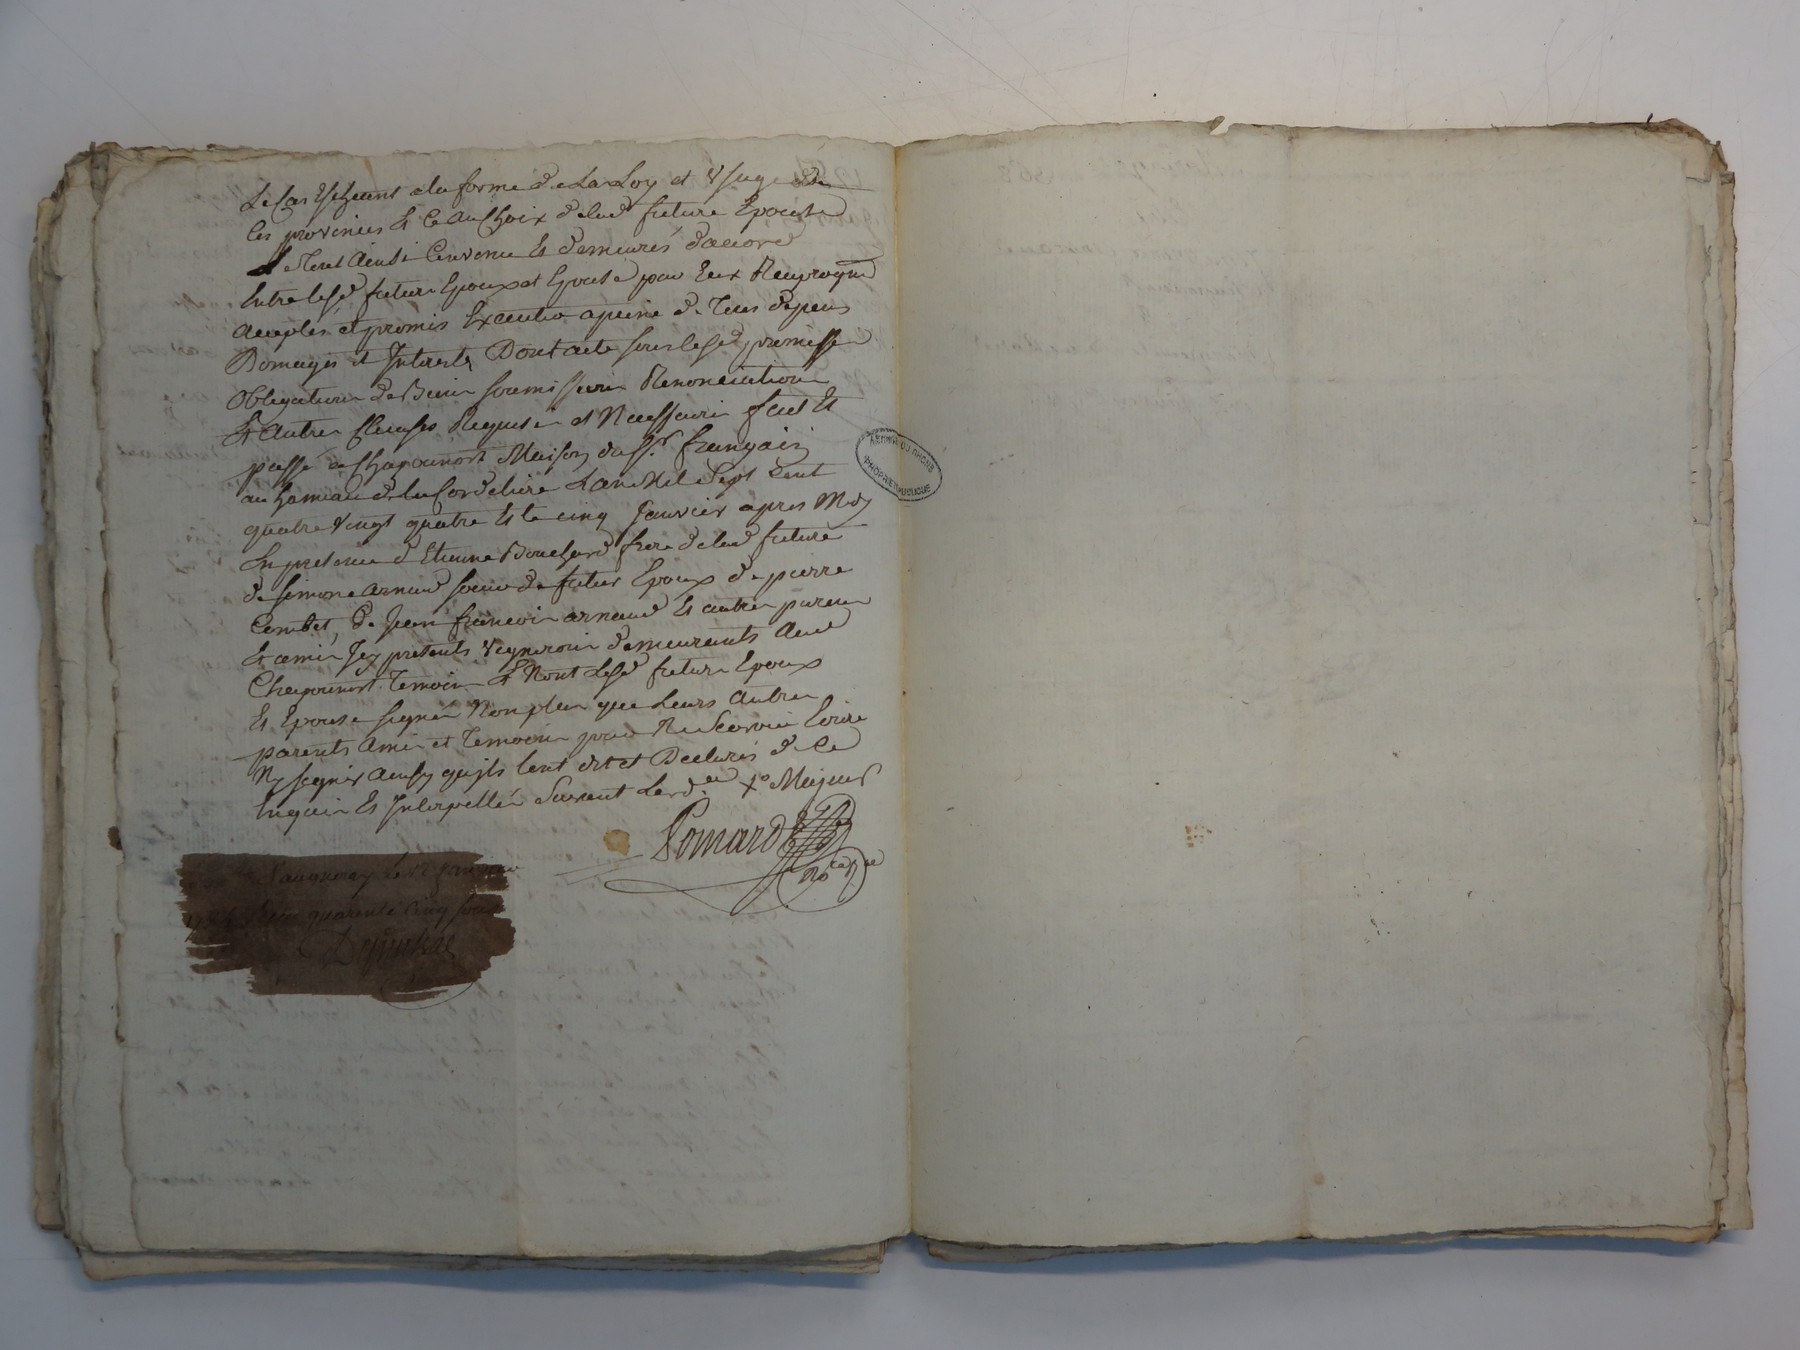 Le Cas Escheant a la forme de La Loy et Usage de
Ces provinces Et Ce au Choix de lad future Epouse
Et Tout Ainsi Convenu Et demeurés d'accord
Entre lesd futurs Epoux et Epouse par Eux Reciproqm
acceptés et promis Execution a peine de Tous depens
Domages et Interests Dont acte sous lesd promesses
Obligations de Biens Soumissions Renonciations
Et Autres Clauses Requises et Necessaires fait Et
passé a Chaponnost Maison du Sr. français
au hameau de la Cordeliere L'an Mil Sept Cent
quatre Vingt quatre Et le cinq Janvier apres Midy
En presence d'Etienne Bouchard frere de lad future
de Simone arnaud soeur du futur Epoux de pierre
Combet, de Jean francois arnaud Et autres parens
Et amis Icy presents Vignerons demeurants aud
Chaponnost Temoins Et N'ont Lesd futurs Epoux
Et Epouse signés Non plus que Leurs Autres
parents Amis et Temoins pour Ne Scavoir Ecrire
Ny signer ainsy qu'ils l'ont dit et Declarés de ce
Enquis Et Interpellés Suivant L'ord. Majeurs
Pomard
Nore Ral
Vaugneray Le 12 Janvier
1784 Reçu quarente Cinq sous
ARCHIVES DU RHONE
PROPRIETE PUBLIQUE